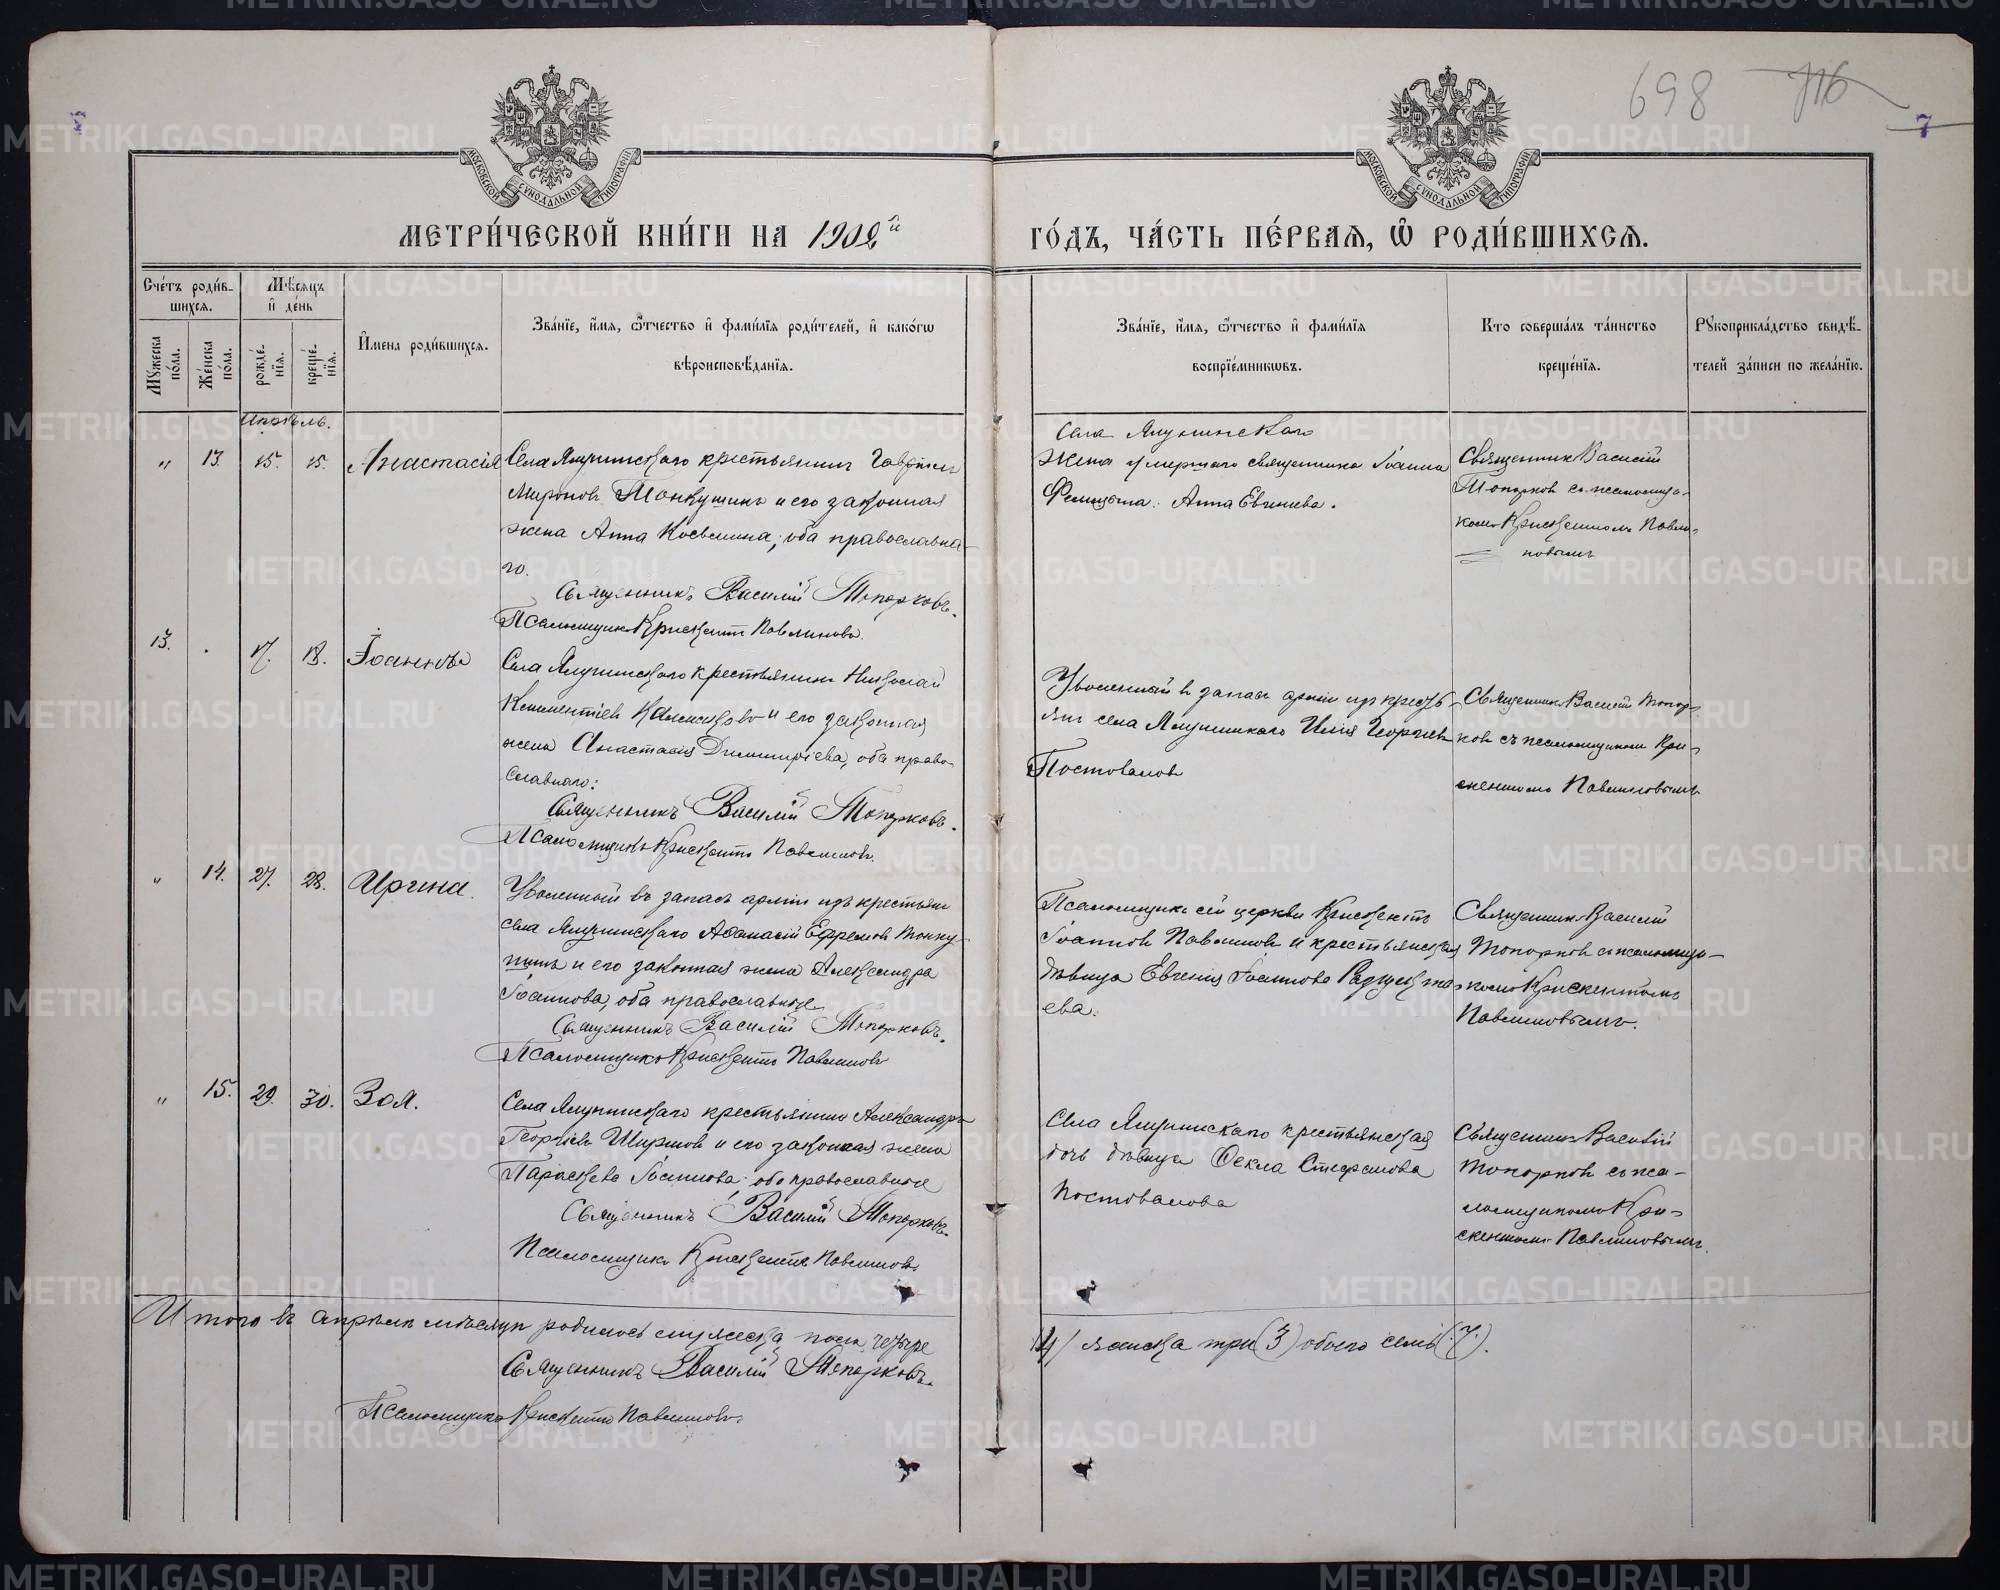 698 716
7
МОСКОВСКОЙ СѴНОДАЛЬНОЙ ТИПОГРАФІИ
МОСКОВСКОЙ СѴНОДАЛЬНОЙ ТИПОГРАФІИ
МЕТРИ́ЧЕСКОЙ КНИ́ГИ НА 1902й
ГО́ДЪ, ЧА́СТЬ ПЕ́РВАѦ, Ѡ РОДИ́ВШИХСѦ.
Сче́тъ роди́в-
шихсѧ.
Мѣ́сѧцъ
и҆ де́нь
Мꙋжеска по́ла.
Же́нска по́ла.
рожде́-нїѧ.
креще́-нїѧ.
И҆мена роди́вшихсѧ.
Зва́нїе, и҆́мѧ, ѿтчество и҆ фами́лїѧ роди́телей, и҆ како́гѡ
вѣроисповѣ́данїѧ.
Зва́нїе, и҆́мѧ, ѿтчество и҆ фами́лїѧ
воспрїе́мникѡвъ.
Кто соверша́лъ та́инство
креще́нїѧ.
Рꙋкоприкла́дство свидѣ́-
телей за́писи по жела́нїю.
Апрѣль.
„ 13. 15. 15. Анастасія
Села Ялунинскаго крестьянинъ Гавріилъ
Мироновъ Тонкушинъ и его законная
жена Анна Косьмина, оба православна-
го.
Священникъ Василій Топорковъ.
Псаломщикъ Крискентъ Павлиновъ.
Села Ялунинскаго
жена умершаго священника Іоанна
Анна Евгениева.
Священникъ Василій
Топорковъ съ псаломщи-
комъ Крискентомъ Павли-
новымъ
13. . 17. 18. Іоаннъ
Села Ялунинскаго крестьянинъ Николай
Климентіевъ и его законная
жена Анастасія Димитріева, оба право-
славнаго:
Священникъ Василій Топорковъ.
Псаломщикъ Крискентъ Павлиновъ.
Уволенный въ запасъ арміи изъ кресть-
янъ села Ялунинскаго Илія Георгіевъ
Постоваловъ
Священникъ Василій Топор-
ковъ съ псаломщикомъ Кри-
скентомъ Павлиновымъ
„ 14. 27. 28. Ирина.
Уволенный въ запасъ арміи изъ крестьянъ
села Ялунинскаго Аѳанасій Ефремовъ Тонку-
шинъ и его законная жена Александра
Іоаннова, оба православные
Священникъ Василій Топорковъ.
Псаломщикъ Крискентъ Павлиновъ
Псаломщикъ сей церкви Крискентъ
Іоанновъ Павлиновъ и крестьянская
дѣвица Евгенія Іоаннова
ева.
Священникъ Василій
Топорковъ съ псаломщи-
комъ Крискентомъ
Павлиновымъ.
„ 15. 29. 30. Зоя.
Села Ялунинскаго крестьянинъ Александръ
Георгіевъ Ширшовъ и его законная жена
Параскева Іоаннова, оба православные
Священникъ Василій Топорковъ.
Псаломщикъ Крискентъ Павлиновъ.
Села Ялунинскаго крестьянская
дочь дѣвица Ѳекла Стефанова
Постовалова
Священникъ Василій
Топорковъ съ пса-
ломщикомъ Кри-
скентомъ Павлиновымъ.
Итого въ апрѣлѣ мѣсяцѣ родилось мужеска пола четыре
(4) женска три (3) обоего семь (7).
Священникъ Василій Топорковъ.
Псаломщикъ Крискентъ Павлиновъ.
METRIKI.GASO-URAL.RU